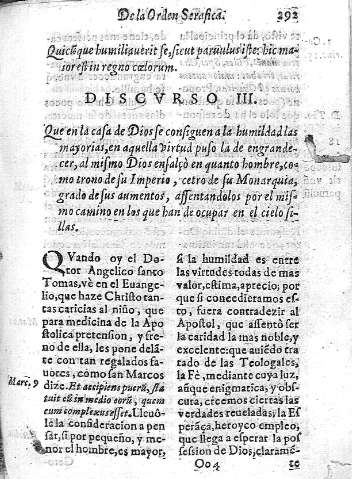 De la Orden Serafica.
292
Quicũque humiliauerit se, sicut paruulus iste, hic ma
ior est in regno cœlorum.
DISCVRSO III.
Que en la casa de Dios se consiguen a la humildad las
mayorias, en aquella virtud puso la de engrande-
cer, al mismo Dios ensalçò en quanto hombre, co-
mo trono de su Imperio, cetro de su Monarquia,
grado de sus aumentos, assentandolos por el mis
mo camino en los que han de ocupar en el cielo si-
llas.
QVando oy el Do-
tor Angelico santo
Tomas, vè en el Euange-
lio, que haze Christo tan-
tas caricias al niño, que
para medicina de la Apo
stolica pretension, y fre-
no de ella, les pone delã-
te con tan regalados fa-
uores, cómo san Marcos
Marc. 9
dize. Et accipiens puerũ, sta
tuit eũ in medio eorũ, quem
cum complexus esset. Lleuò-
le la consideracion a pen-
sar, si por pequeño, y me-
nor el hombre, es mayor,
si la humildad es entre
las virtudes todas de mas
valor, estima, aprecio; por
que si concedieramos es-
to, fuera contradezir al
Apostol, que assentò ser
la caridad la mas noble, y
excelente: que auiẽdo tra
tado de las Teologales,
la Fè, mediante cuya luz,
aũque enigmatica, y obs-
cura, creemos ciertas las
verdades reueladas, la Es
perãça, heroyco empleo,
que llega a esperar la pos
session de Dios, claramẽ-
Oo 4
te